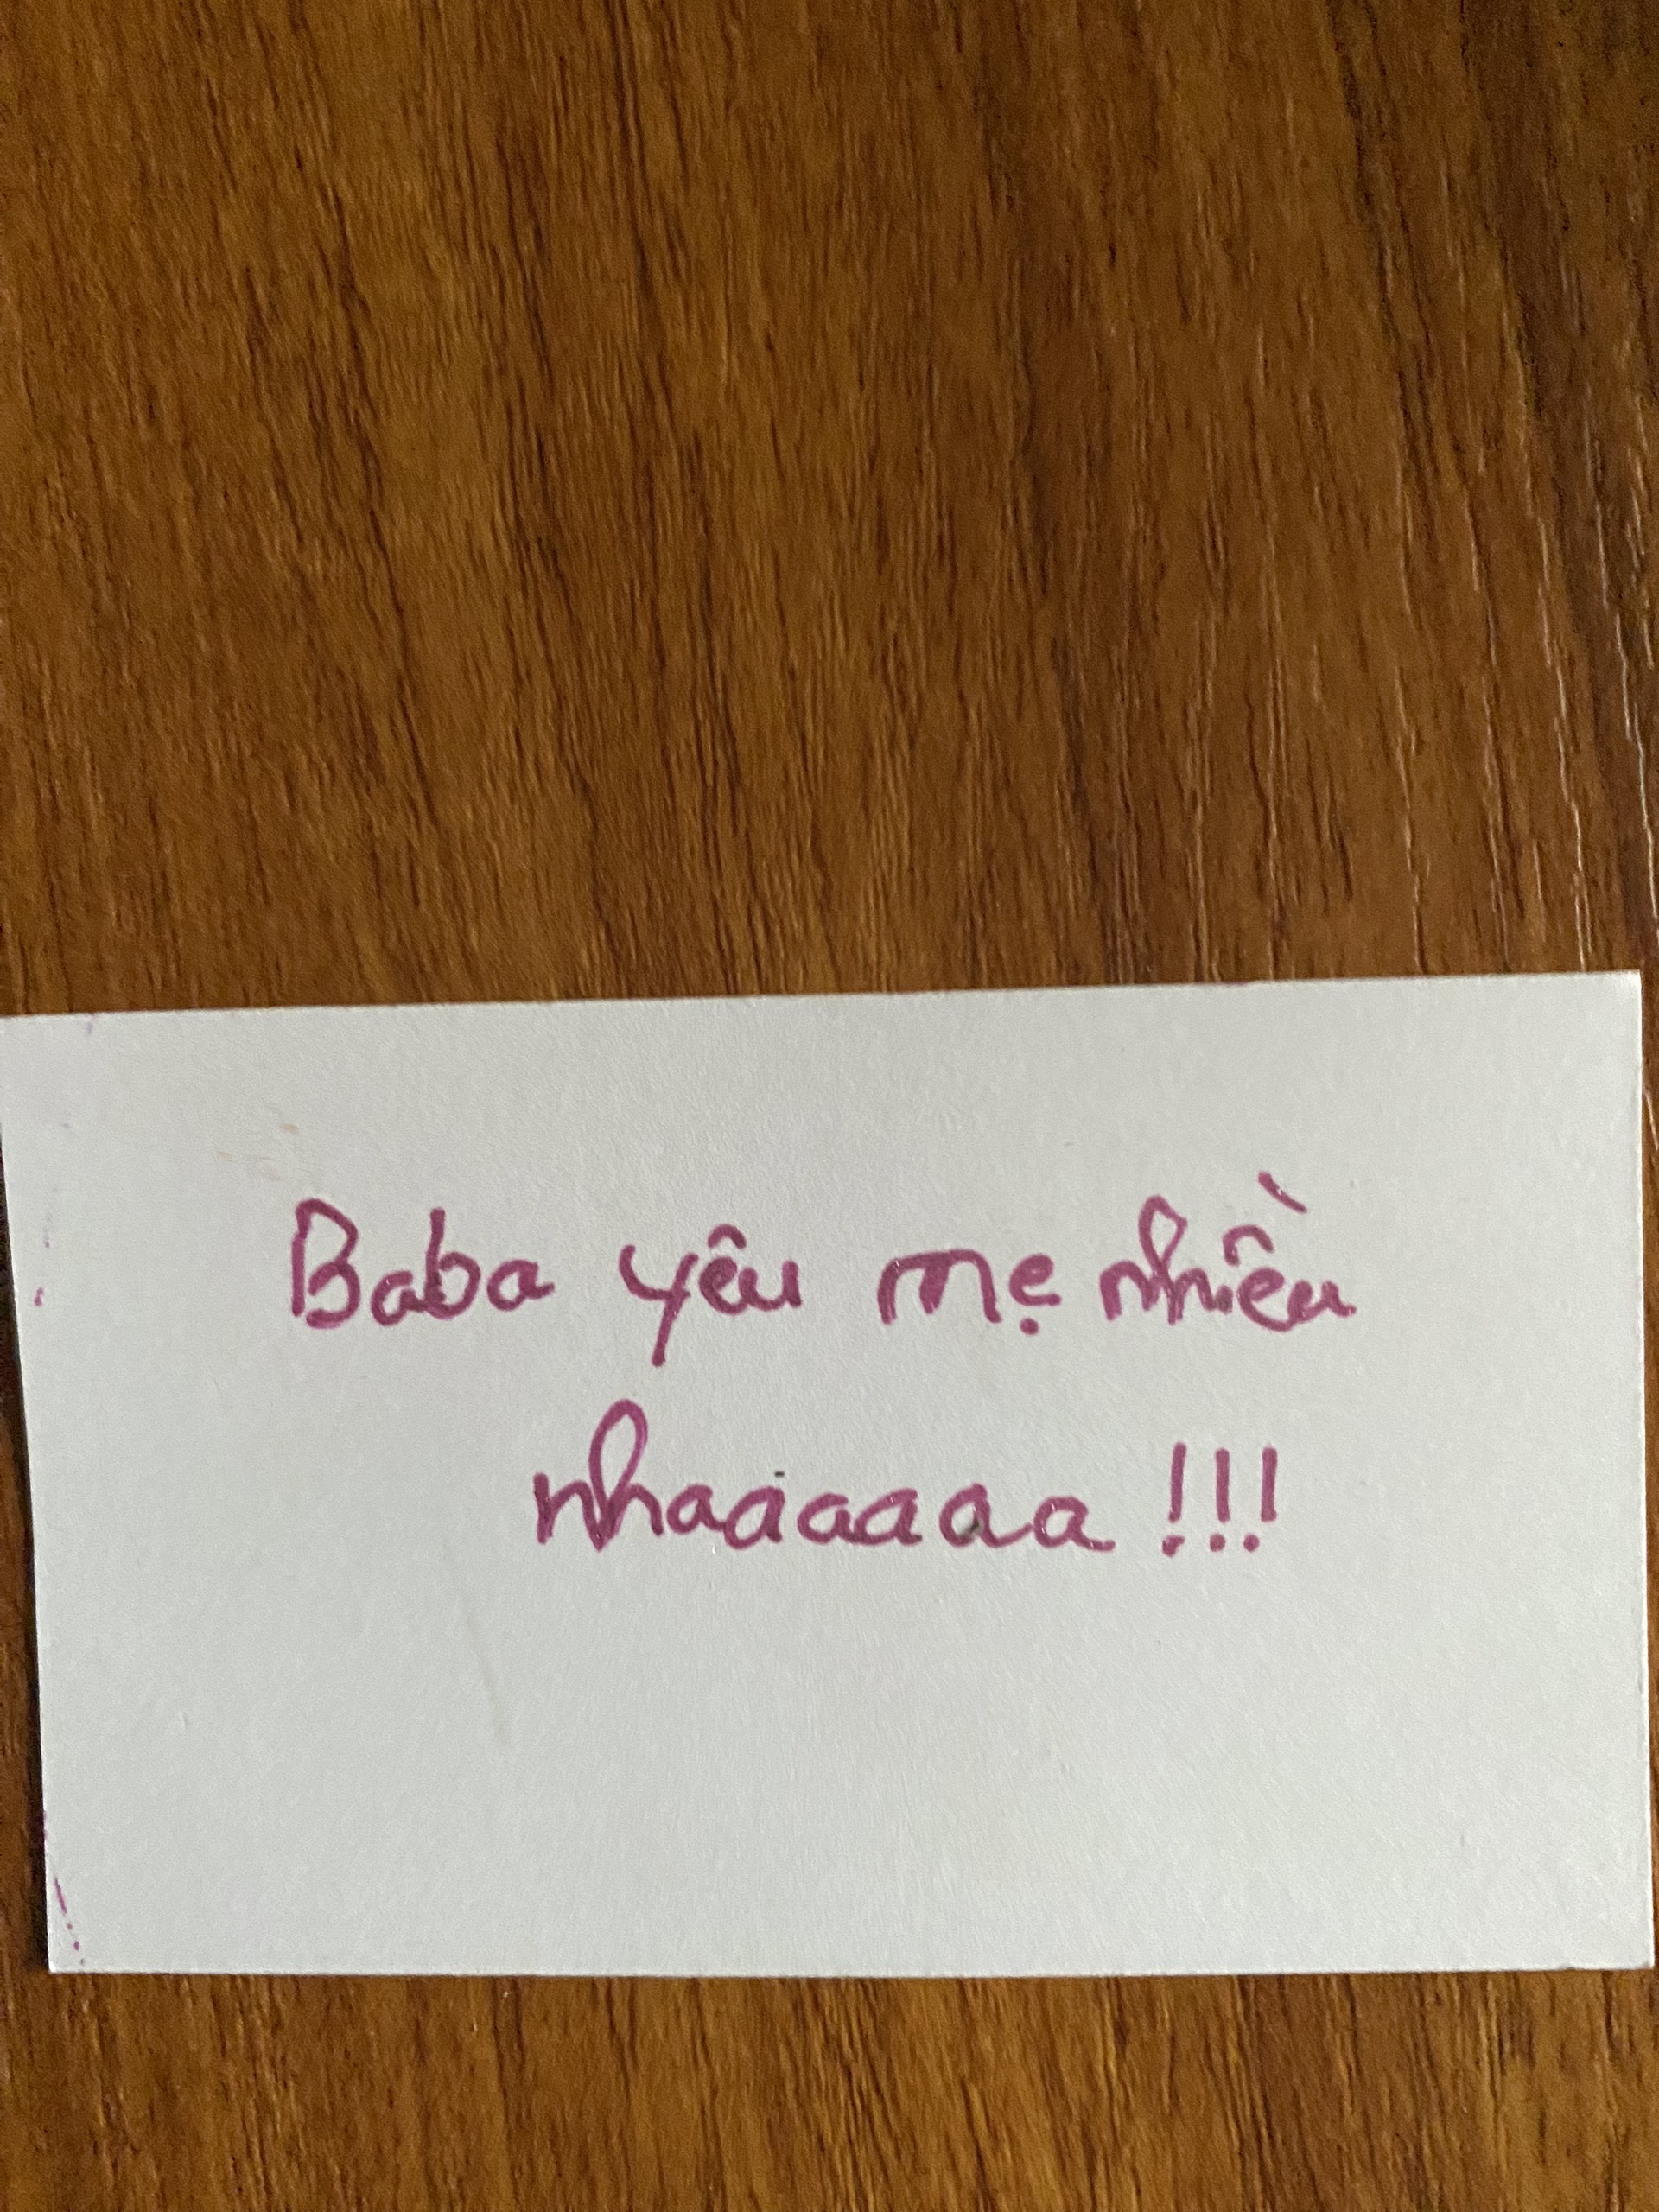 Baba yêu mẹ nhiều
nhaaaaaaa !!!